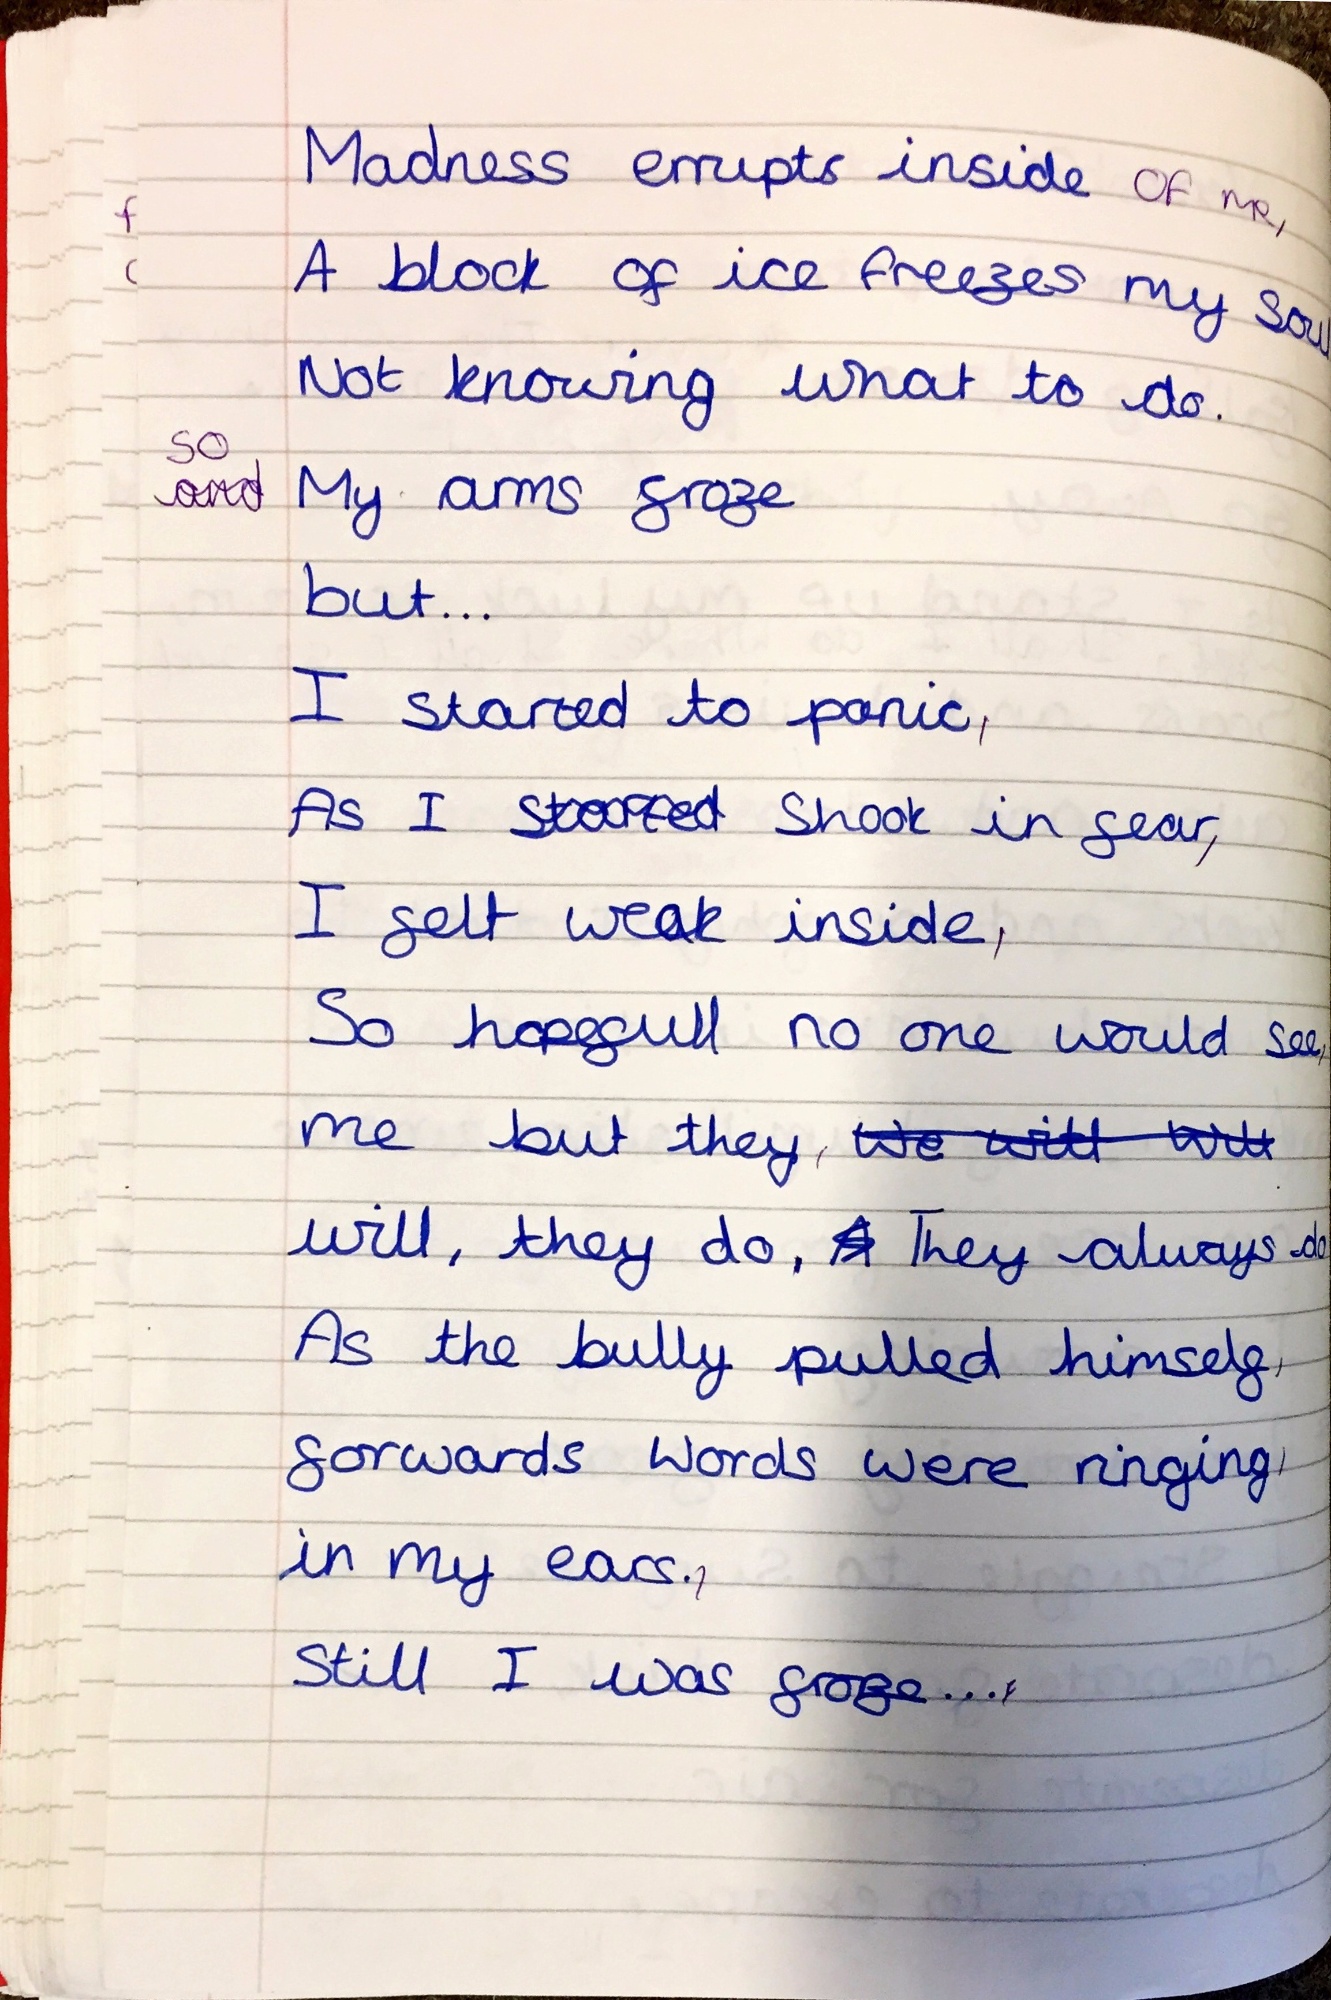 Madness errupts inside of me,
f
A block of ice freezes my soul
c
Not knowing what to do.
so
and My arms froze
but...
I started to panic,
As I started shook in fear,
I felt weak inside,
So hopefull no one would see,
me but they, we will will
will, they do, A They always do
As the bully pulled himself,
forwards words were ringing,
in my ears.,
Still I was froze...,